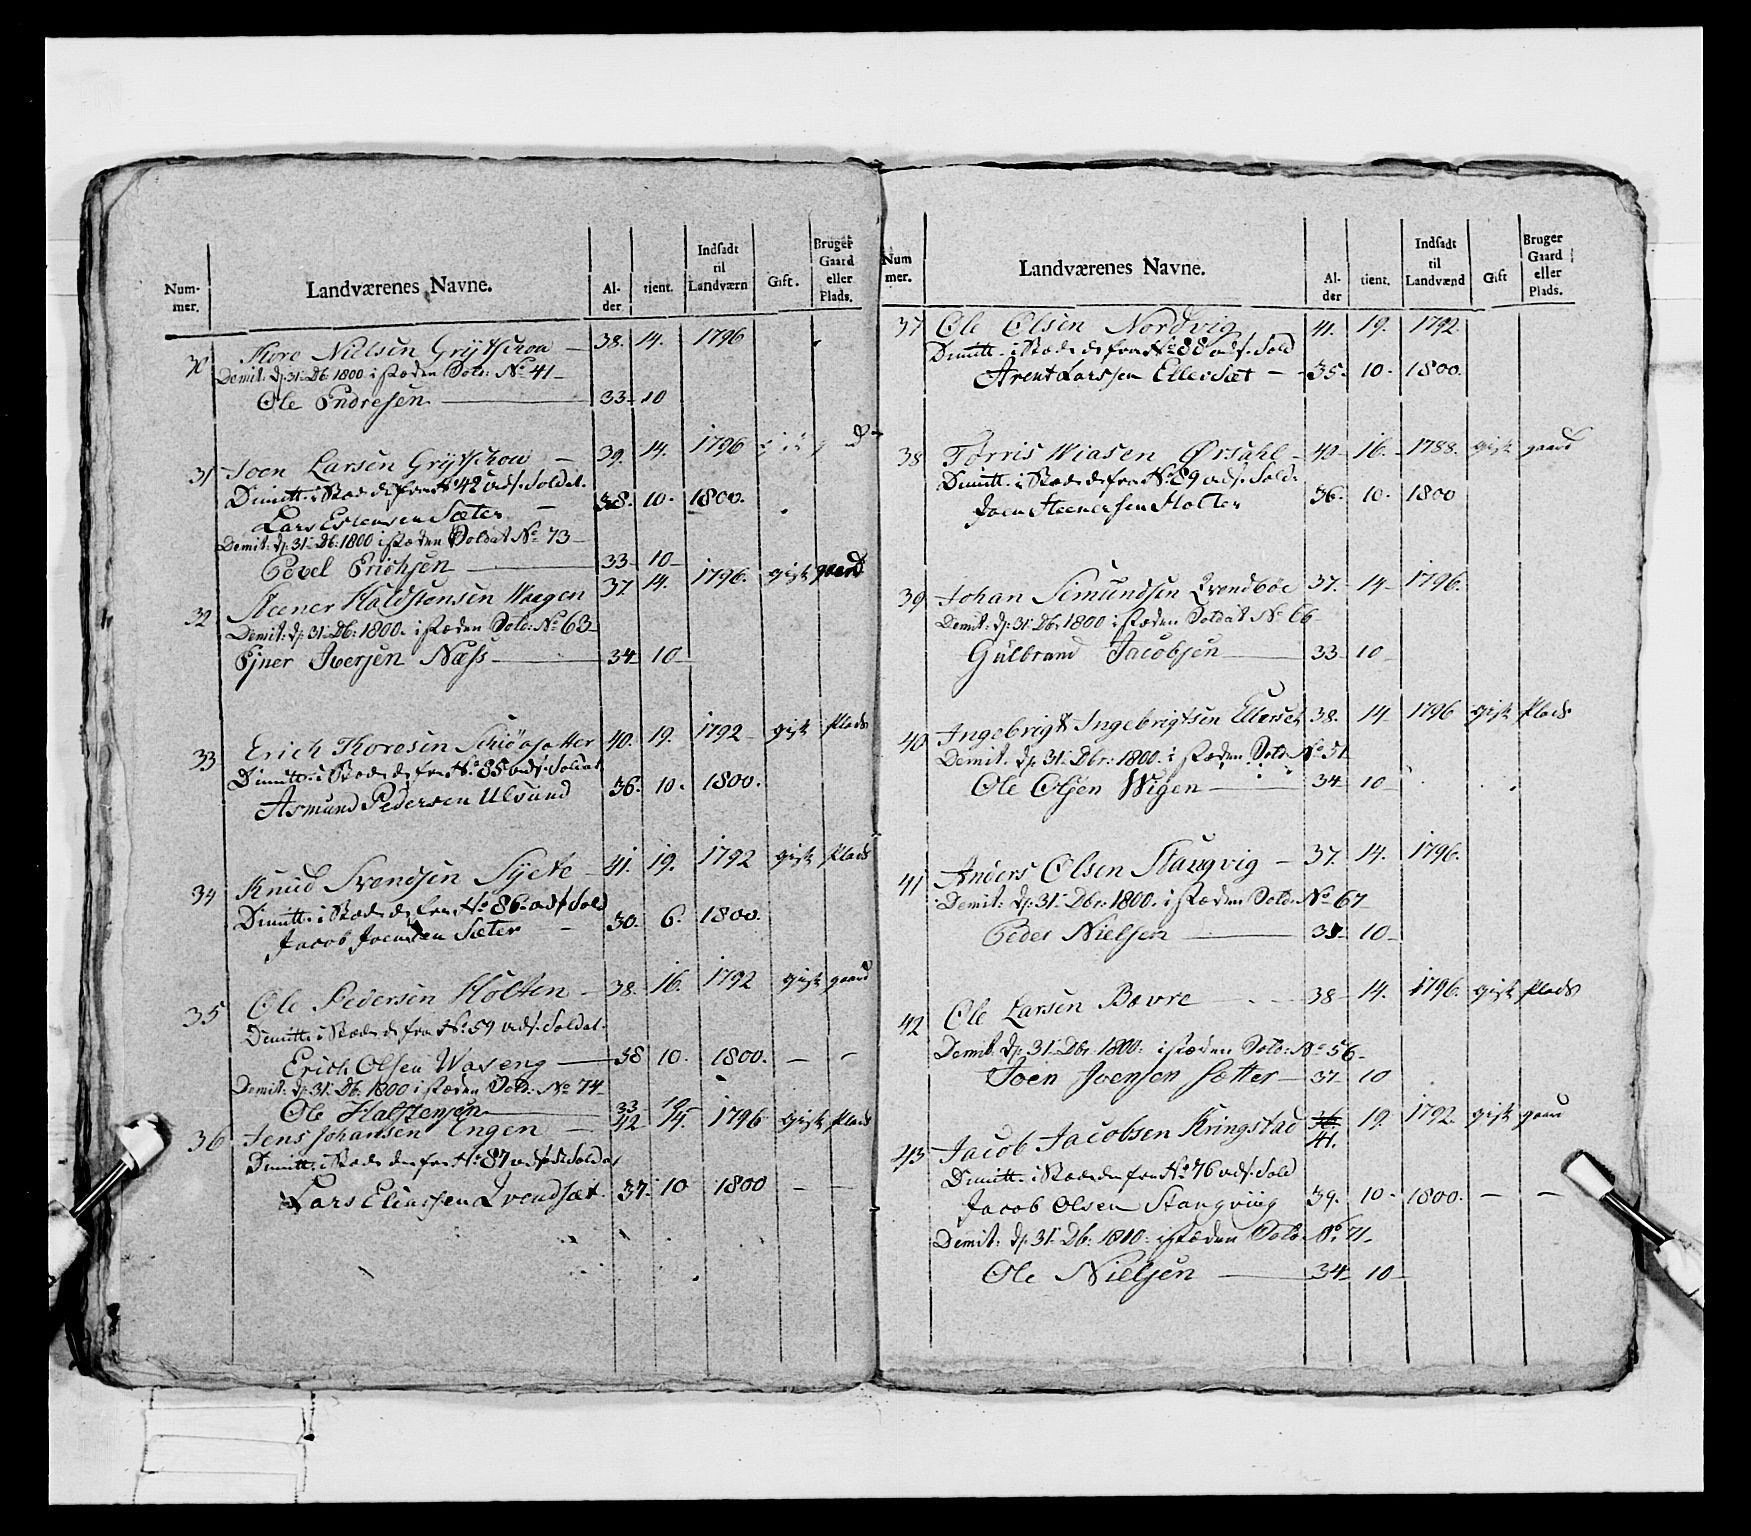 Num-
mer.
Landværenes Navne.
Al-
der
tient.
Indsadt
til
Landværn
Gift.
Bruger
Gaard
eller
Plads.
30 Thore Nielsen 38. 14. 1796
Demit: d: 31 Db: 1800 i stæden Sold: No 41
Ole Endresen 33 10
31 Joen Larsen 39. 14. 1796
Dimitt: i Stæde fra No 42 Soldat.
Lars Estensen Sæter 38. 10. 1800.
Demit: d: 31 Db: 1800 i stæden Soldat No 73
Povel Erichsen 33 10
32 Steener Haldstensen Waagen 37 14. 1796. gift gaard
Demit: d: 31 Db: 1800. i stæden Sold: No 63
Ejner Iversen Næss 34 10
33 Erich Thoresen 40. 19. 1792 gift plads
Dimitt: i Stæde fra No 85 Soldat
Asmund Pedersen Ulvund 36. 10. 1800.
34 Knud Svendsen 41. 19. 1792 gift plads
Dimitt: i Stæde fra No 86 Sold
Jacob Joensen Sæter 30. 6. 1800.
35 Ole Pedersen Holten 38. 16. 1792 gift gaard
Dimitt: i Stæde fra No 59 Soldat.
Erich Olsen Waseng 38 10. 1800.
Demit: d: 31 Db: 1800 i stæden Sold: No 74
Ole Halstensen 33 10
36 Jens Johansen Engen 42 14. 1796 gift plads
Dimitt: i Stæde fra No 87 Soldat
Lars Eliassen 37. 10 1800
Num
mer.
Landværenes Navne.
Al-
der
tient.
Indsadt
til
Landværnd
Gift
Bruger
Gaard
eller
Plads.
37 Ole Olsen Nordvig 41. 19. 1792
Dimitt: i Stæde fra No 88 Sold
Arent Larssen Ellevset 35. 10. 1800.
38 Torris Ørsahl 42 16. 1788. gift gaard
Dimitt: i Stæde fra No 89 Sold:
Joen Steenersen Holter 36. 10. 1800
39 Johan Simundsen 37. 14 1796.
Demit: d: 31 Db: 1800 i stæden Soldat No 66
Gulbrand Jacobsen 33 10
40 Ingebrigt Ingebrigtsen Ellevset 38. 14 1796 gift plads
Demit: d: 31 Dbr: 1800. i stæden Sold: No 51
Ole Olsen Wigen 34 10
41 Anders Olsen Stangvig 37. 14. 1796.
Demit: d: 31 Dbr: 1800. i stæden Sold: No 67
Peder Nielsen 10
42 Ole Larsen Bævre 38 14. 1796. gift plads
Demit: d: 31 Dbr: 1800. i stæden Sold: No 56
Joen Joensen Sætter 37 10
43 Jacob Jacobsen Kringstad 38. 19. 1792. gift gaard
41.
Dimitt: i Stæde fra No 76 Sold
Jacob Olsen Stangviig 39. 10. 1800.
Demit: d: 31 Db: 1800. i stæden Sold: No 71
Ole Nielsen 34 10